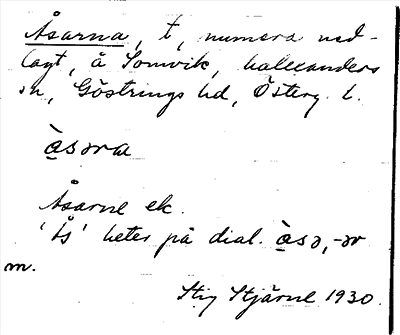 Åsarna, t, numera ned-
lagt, å Tomvik, Kalleanders
sn, Göstrings hd, Österg. l.
àsəra
Åsarne ek.
'Ås' heter på dial. àsə, -ər
m.
Stig Stjärne 1930.